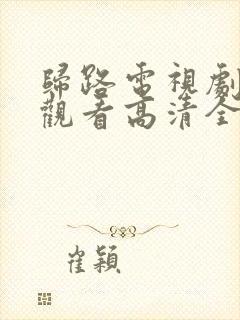 歸路電視劇
觀看高清全
崔穎